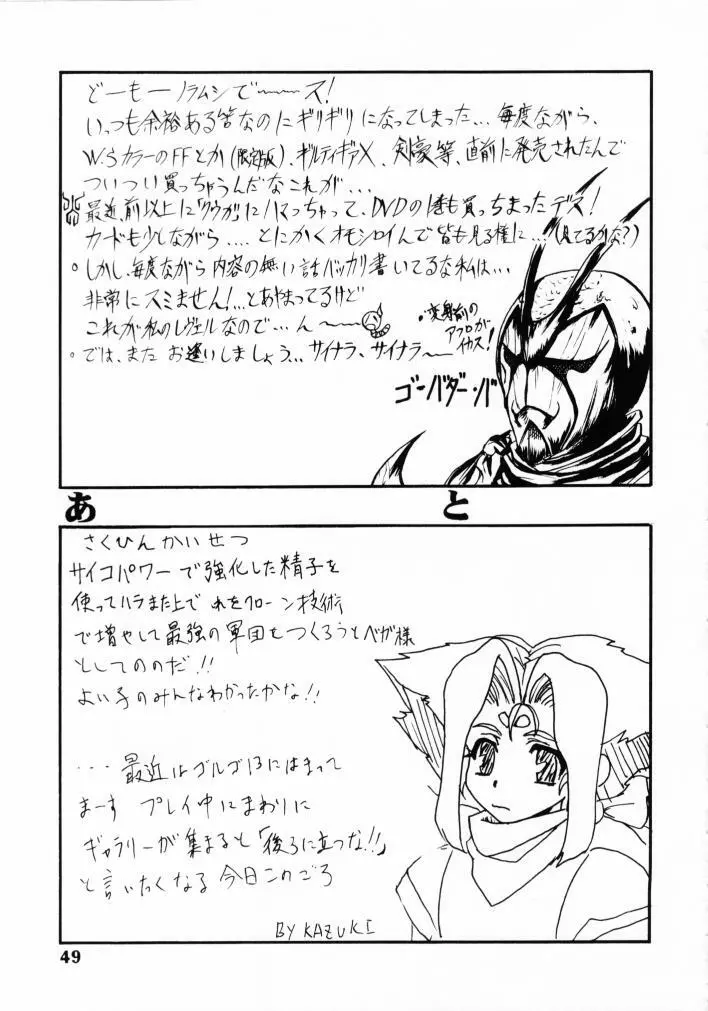 どーもーノラムシでーース!
いっつも余裕ある筈なのにギリギリになってしまった...毎度ながら、
W.SカラーのFFとか(限定版)、ギルティギアX、剣豪等、直前に発売されたんで
ついつい買っちゃうんだなこれが...
最近、前以上に「クウガ」にハマっちゃって、DVDの1巻も買っちまったデス!
カードも少しながら....とにかくオモシロイんで皆も見る様に...(見てるかな?)
しかし、毎度ながら内容の無い話バッカリ書いてるな私は...
非常にスミません!...とあやまってるけど
これが私のレヴェルなので...ん〜〜
では、また お逢いしましょう...サイナラ、サイナラ〜
変身前の
アフロが
イカス!
ゴ・バダー・バ
あ
と
さくひんかいせつ
サイコパワーで強化した精子を
使ってハラませ上で れをクローン技術
で増やして最強の軍団をつくろうとベガ様
としてのだ!!
よい子のみんなわかったかな!!
...最近はゴルゴ13にはまって
まーす プレイ中にまわりに
ギャラリーが集まると「後ろに立つな!!」
と言いたくなる今日このごろ
BY KAZUKI
49